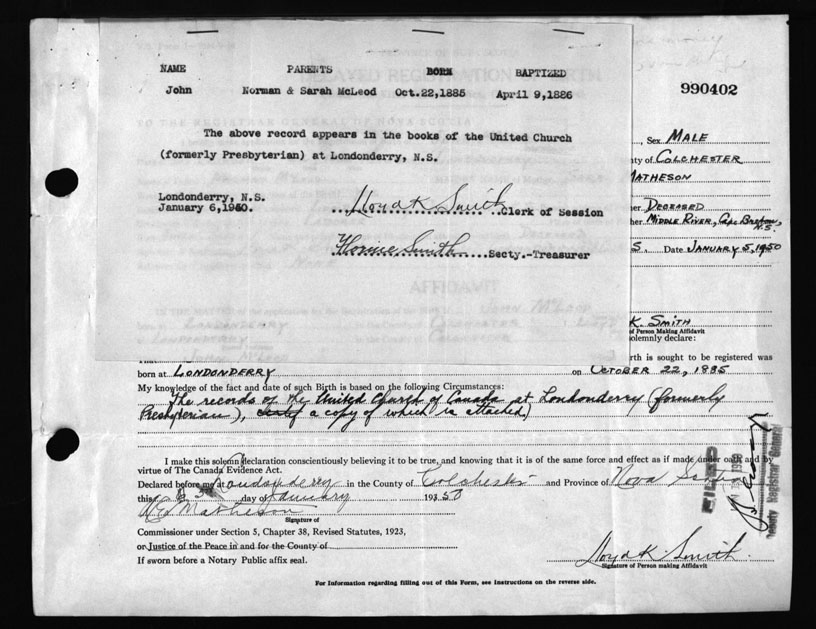 NAME PARENTS BORN BAPTIZED
John Norman & Sarah McLeod Oct.22,1885 April 9,1886
The above record appears in the books of the United Church
(formerly Presbyterian) at Londonderry, N.S.
Londonderry, N.S.
January 6,1950. Lloyd K Smith Clerk of Session
Florine Smith Secty.-Treasurer
990402
Sex MALE
ty of COLCHESTER
MATHESON
er DECEASED
her MIDDLE RIVER, Cape Breton, N.S.
S. Date JANUARY 5, 1950
AFFIDAVIT
JOHN McLEOD
LONDONDERRY
K. SMITH
of Person Making Affidavit
solemnly declare:
rth is sought to be registered was
born at LONDONDERRY on OCTOBER 22, 1885
My knowledge of the fact and date of such Birth is based on the following Circumstances:
The records of the United Church of Canada at Londonderry (formerly
Presbyterian), a copy of which is attached)
I make this solemn declaration conscientiously believing it to be true, and knowing that it is of the same force and effect as if made under oath and by
virtue of The Canada Evidence Act.
Declared before me at Londonderry in the County of Colchester and Province of Nova Scotia
this day of January 1950
Matheson
Signature of
Commissioner under Section 5, Chapter 38, Revised Statutes, 1923,
or Justice of the Peace in and for the County of
If sworn before a Notary Public affix seal.
Lloyd K. Smith
Signature of Person making Affidavit
For Information regarding filling out of this Form, see Instructions on the reverse side.
FILED
Deputy Registrar General